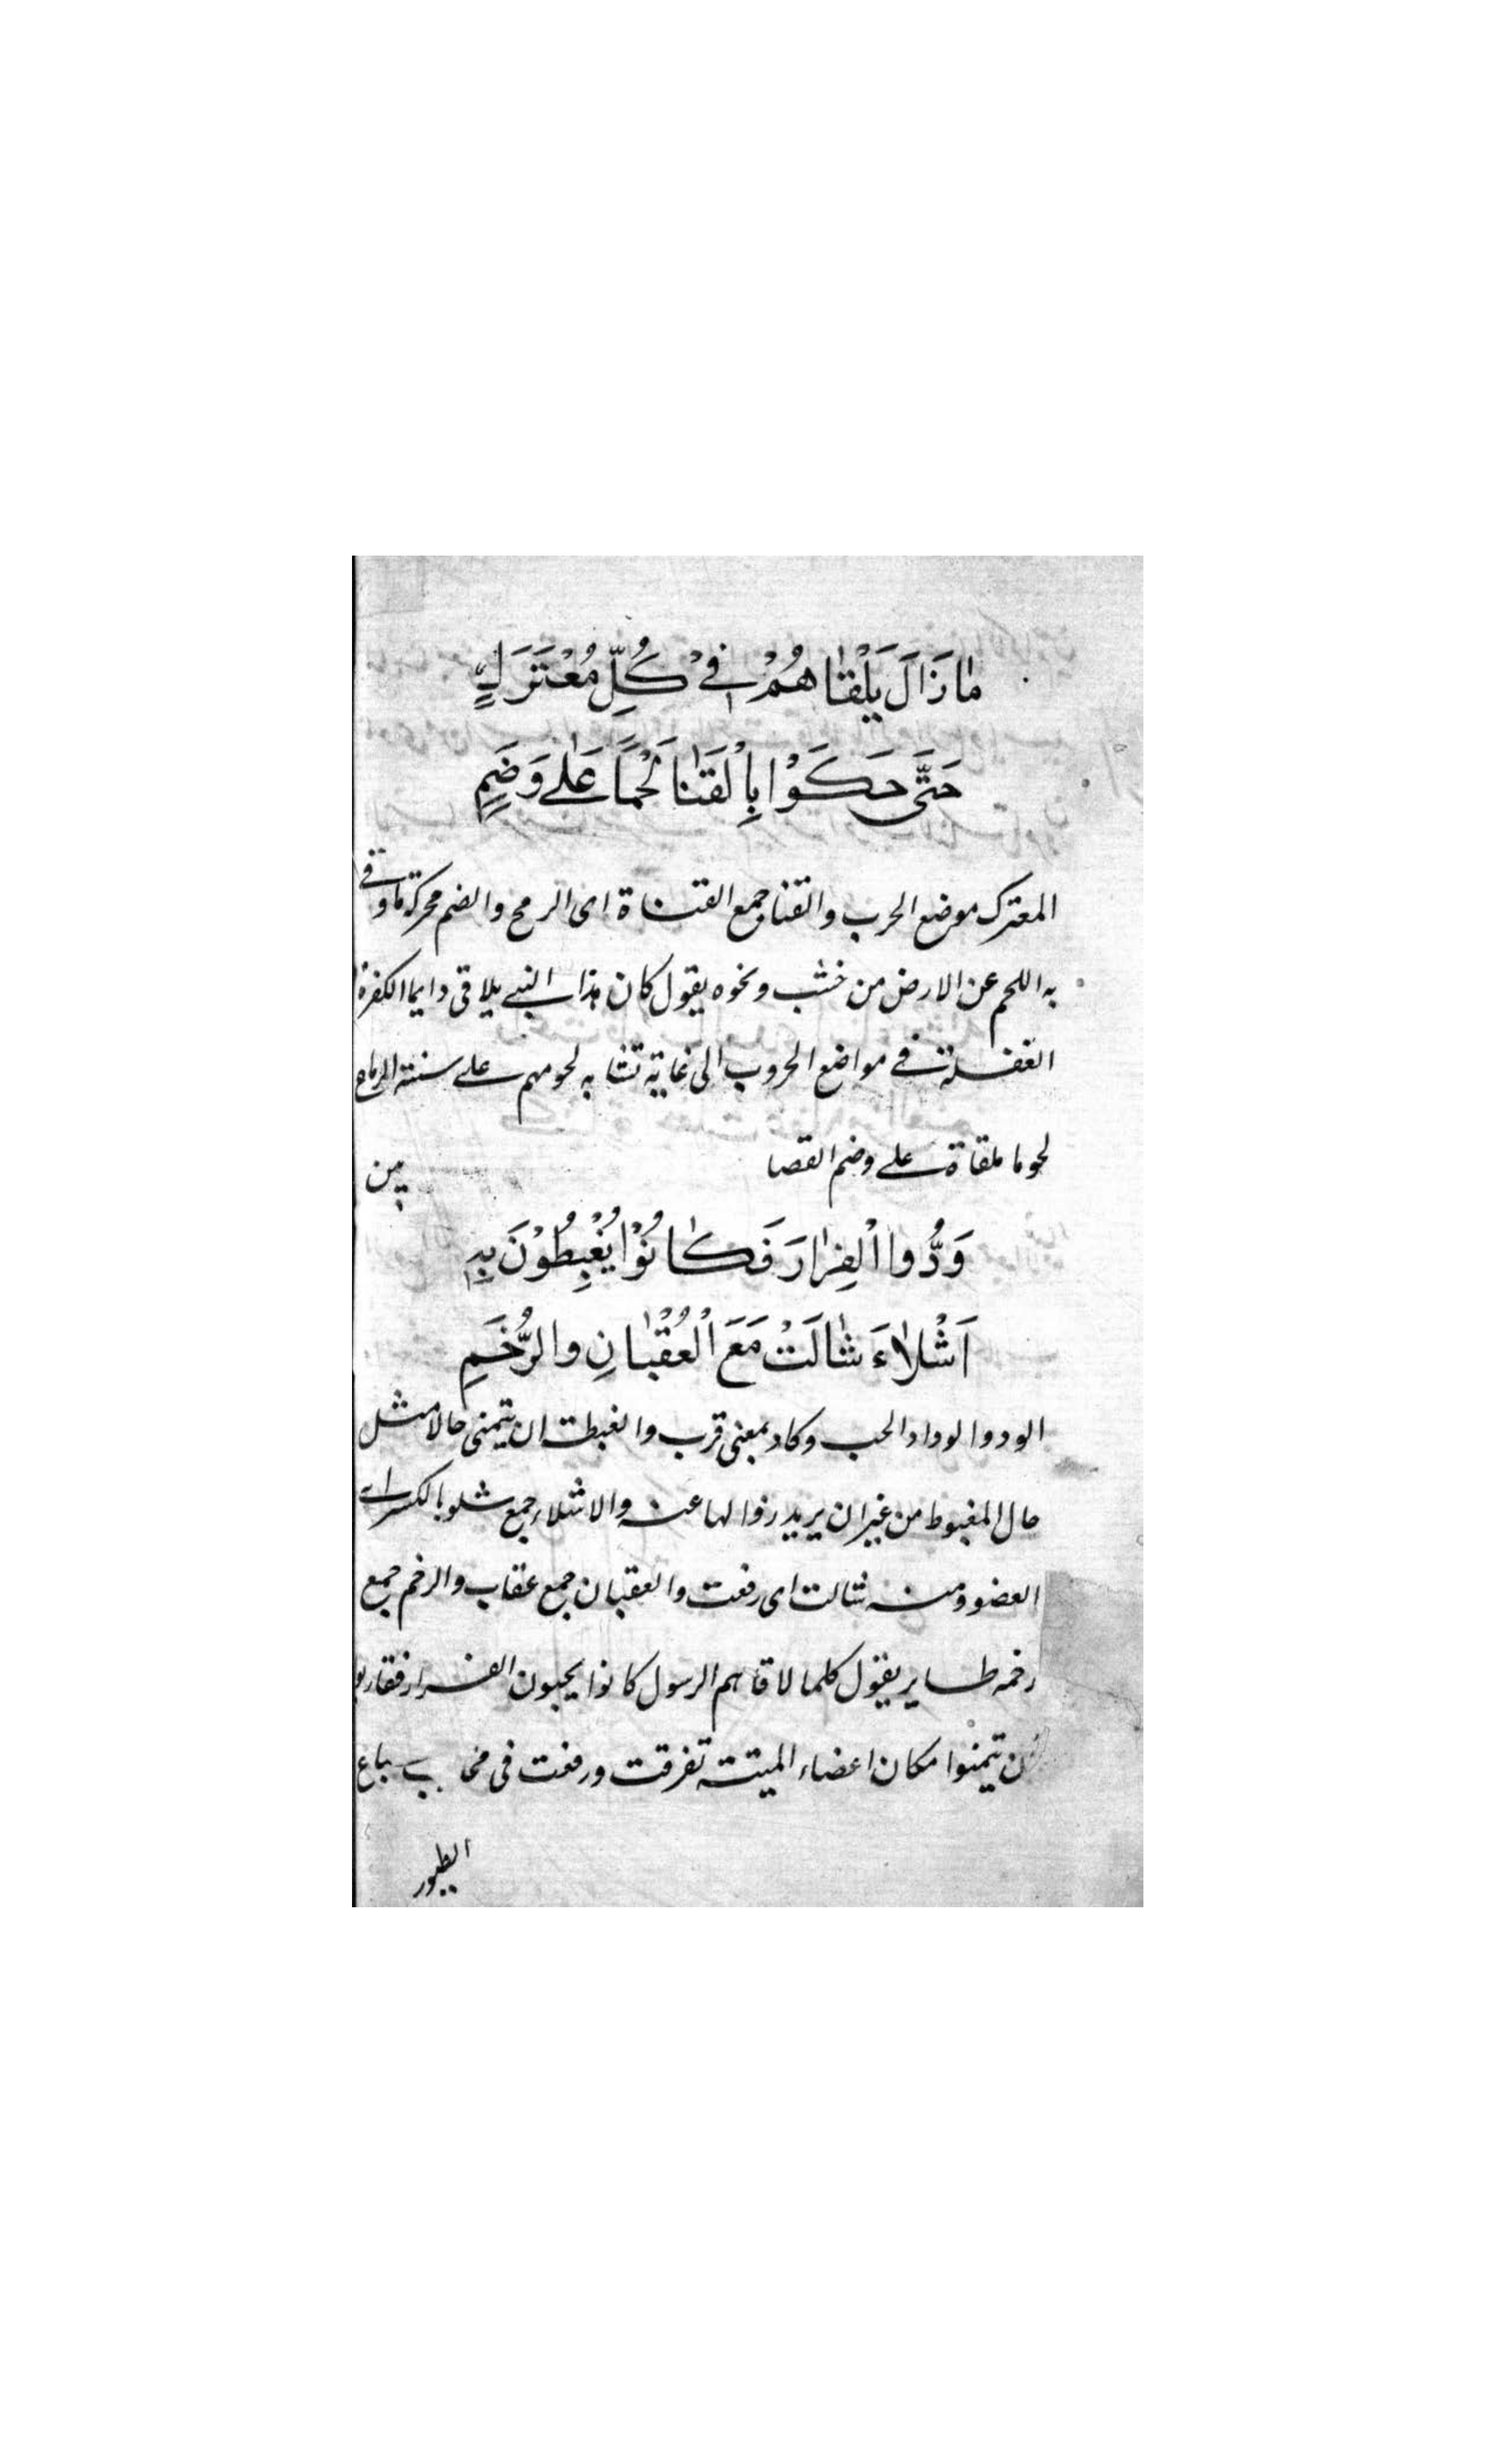 مَا زَالَ يَلْقَاهُمْ فِي كُلِّ مُعْتَرَكٍ
حَتَّى حَكَوْا بِالْقَنَا لَحْمًا عَلَى وَضَمٍ
المعترك موضع الحرب والقنا جمع القناة اى الرمح والضم محركة ما وقى
به اللحم عن الارض من خشب ونحوه يقول كان هذا النبي يلاقى دايما الكفرة
الغفلة في مواضع الحروب الى غاية تشابه لحومهم على سنة الرماح
لحوما ملقاة على وضم القصا
بين
وَدُّوا الْفِرَارَ فَكَانُوْا يُغْبِطُوْنَ بِهِ
اَشْلَاءَ شَالَتْ مَعَ الْعُقْبَانِ والرُّخَمِ
الود والوداد الحب وكاد بمعنى قرب والغبطة ان يتمنى حالا مثل
حال المغبوط من غير ان يريد زوالها عنه والاشلاء جمع شلو بالكسر اے
العضو ومنه شالت اى رفعت والعقبان جمع عقاب والرخم جمع
رخمه طاير يقول كلما لاقاهم الرسول كانوا يحبون الفرار فقاربو
ن يتمنوا مكان اعضاء الميتة تفرقت ورفعت فى مخاب سباع
الطيور